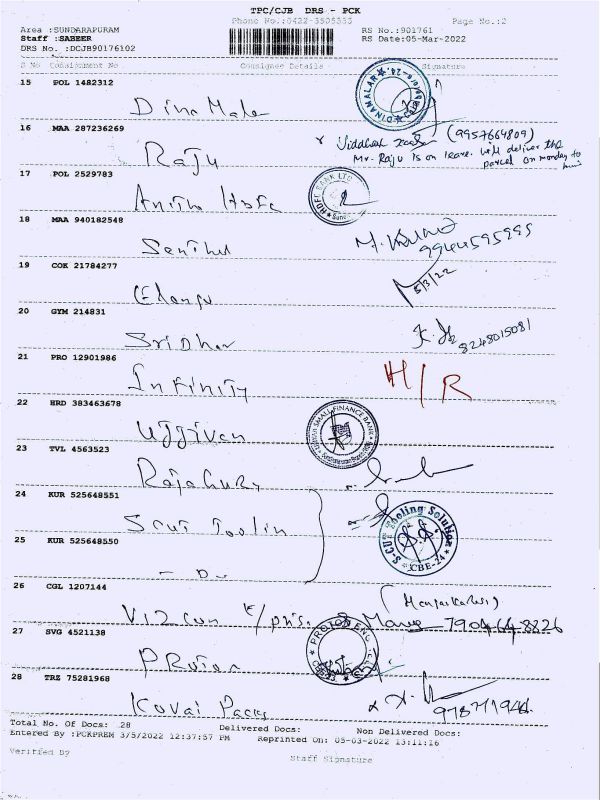 TPC/CJB DRS - PCK
Phone No.:0422-3505333 Page No.:2
Area :SUNDARAPURAM RS No.:901761
Staff :SABEER RS Date:05-Mar-2022
DRS No. :DCJB90176102
S No Consignment No Consignee Details Signature
15 POL 1482312
DINAMALAR
Dina Malar
16 MAA 287236269
(9957664809)
Raju
Mr. Raju is on leave. Will deliver the
parcel on monday to
him
17 POL 2529783
HDFC BANK LTD
Anitha Hdfc
18 MAA 940182548
Senthil
9944595995
19 COK 21784277
5/3/22
Elango
20 GYM 214831
Sridhar
8248015081
21 PRO 12901986
H/R
Infinity
22 HRD 383463678
SMALL FINANCE BANK
Ujjivan
23 TVL 4563523
RajaGuru
24 KUR 525648551
S-CUT Tooling Solution
CBE-24
Scut Toolin
25 KUR 525648550
- Do -
26 CGL 1207144
Vizcon E/pris.
7904648826
27 SVG 4521138
PROTON ENG
Proton
28 TRZ 75281968
Kovai Packs
Total No. Of Docs: 28 Delivered Docs: Non Delivered Docs:
Entered By :PCKPREM 3/5/2022 12:37:57 PM Reprinted On: 05-03-2022 13:11:16
Verified By
Staff Signature